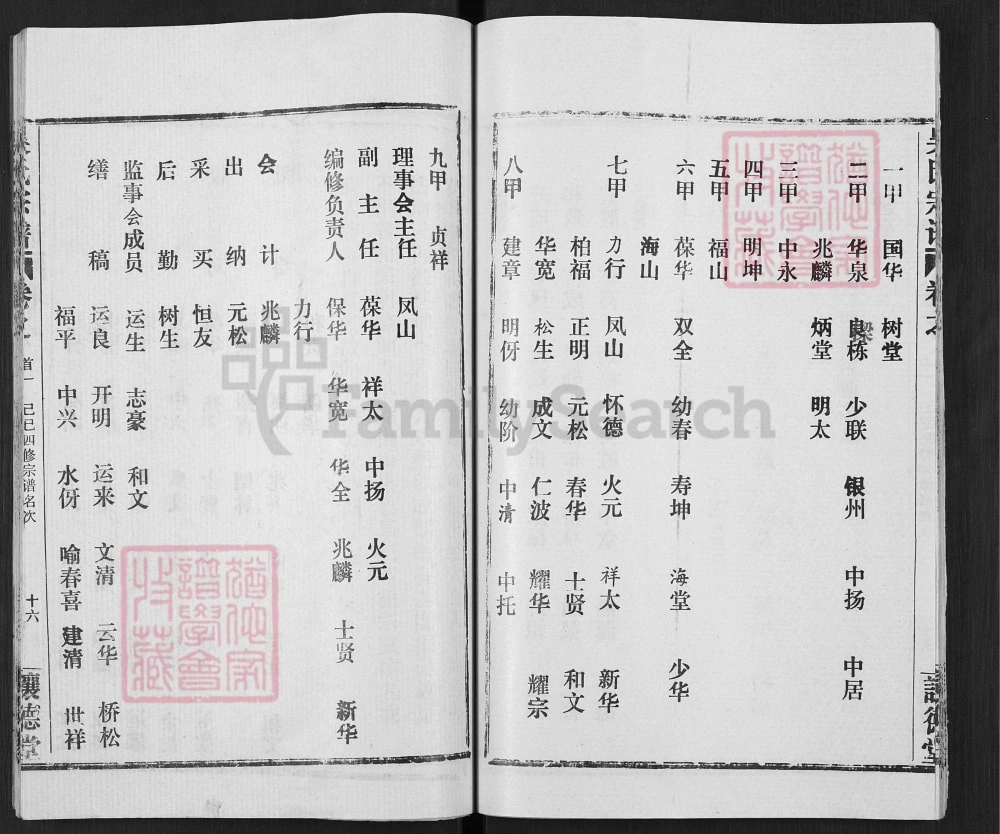 吴氏宗谱 卷之
让德堂
一甲 国华 树堂
二甲 华泉 良栋 少联 银州 中扬 中居
兆麟 炳堂 明太
三甲 中永
四甲 明坤
五甲 福山
六甲 葆华 双全 幼春 寿坤 海堂 少华
海山
七甲 力行 凤山 怀德 火元 祥太 新华
柏福 正明 元松 春华 士贤 和文
华宽 松生 成文 仁波 耀华 耀宗
八甲 建章 明伢 幼阶 中清 中托
九甲 贞祥
理事会主任 凤山
副主任 葆华 祥太 中扬 火元
编修负责人 保华 华宽 华全 兆麟 士贤 新华
力行
会计 兆麟
出纳 元松
采买 恒友
后勤 树生
监事会成员 运生 志豪 和文
缮稿 运良 开明 运来 文清 云华 桥松
福平 中兴 水伢 喻春喜 建清 世祥
首一 己巳四修宗谱名次 十六
FamilySearch